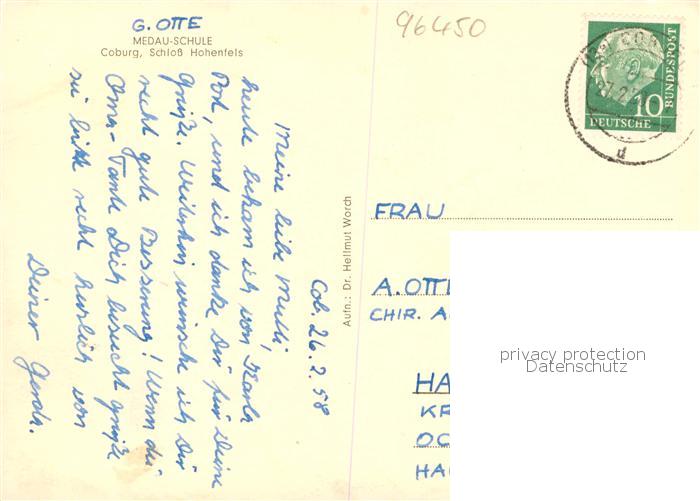 G. OTTE
MEDAU-SCHULE
Coburg, Schloß Hohenfels
96450
BUNDESPOST
10
DEUTSCHE
d
Cob. 26.2.58
Meine liebe Mutti,
heute bekam ich von Karla
Post, und ich danke Dir für Deine
Grüße. Weiterhin wünsche ich Dir
recht gute Besserung! Wenn die
Oma-Tante Dich besucht grüße
sie bitte recht herzlich von
Deiner Gerda.
Aufn.: Dr. Hellmut Worch
FRAU
A. OTTE
CHIR. A
HA
KR
OC
HA
privacy protection
Datenschutz